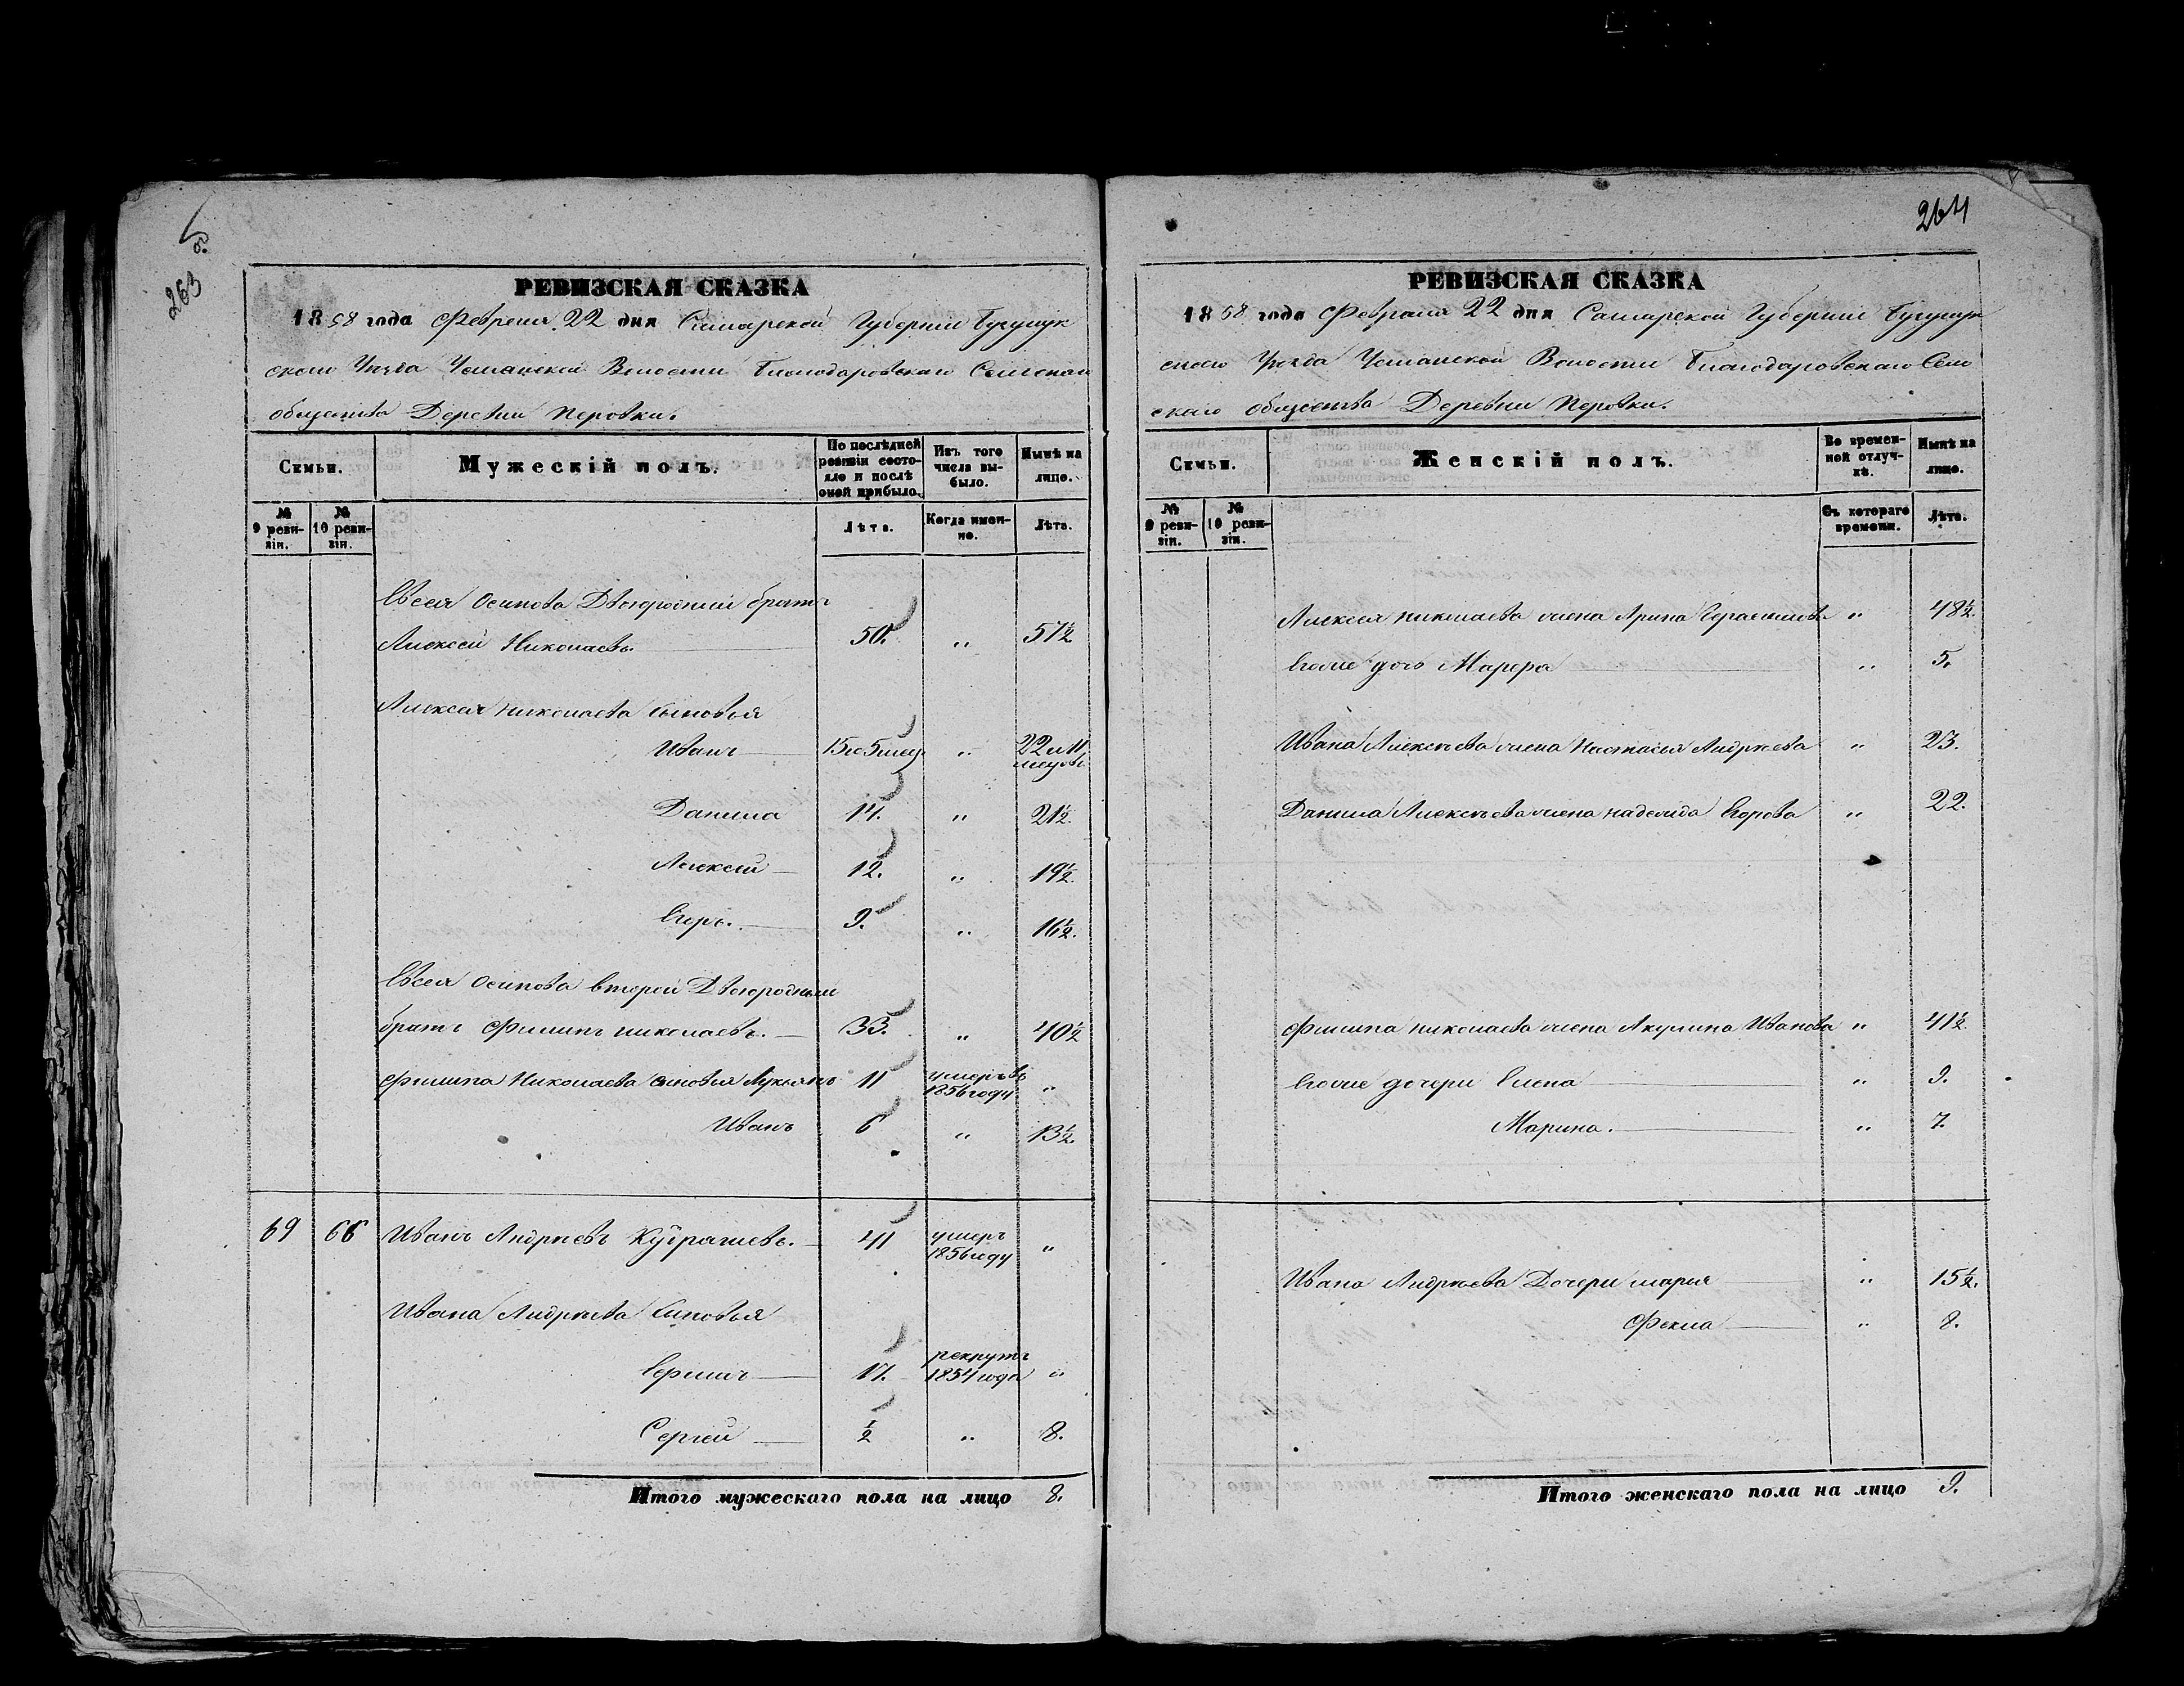 263
об.
РЕВИЗСКАЯ СКАЗКА
1858 года Февраля 22 дня Самарской Губерніи Бугурук
скаго Уѣзда Волости Благодаровскаго Сельскаго
общества Деревни Перовки.
Семьи.
Мужескій полъ.
По послѣдней ревизіи состояло и послѣ оной прибыло.
Изъ того числа выбыло.
Нынѣ на лицо.
№ 9 ревизіи.
№ 10 ревизіи.
Лѣта.
Когда именно.
Лѣта.
Евсея Осипова Двоюродный братъ
Алексей Николаевъ. 50. " 51½
Алексея Николаева Сыновья
Иванъ 15 и 5 мец. " 22 и 11 мецов.
Данила 14. " 21½.
Алексей 12. " 19½.
Егоръ. 9. " 16½.
Евсея Осипова второй Двоюродный
братъ Филипъ Николаевъ. 33. " 40½
Филипа Николаева сыновья Лукьянъ 11 умеръ въ 1856 году "
Иванъ 6 " 13½.
69 66 Иванъ Андреевъ Кудрашевъ. 41 умеръ 1856 году "
Ивана Андреева Сыновья
17. рекрутъ 1854 года "
Сергей ½ " 8.
Итого мужескаго пола на лицо 8.
264
РЕВИЗСКАЯ СКАЗКА
1858 года Февраля 22 дня Самарской Губерніи Бугурук
скаго Уѣзда Волости Благодаровскаго Сель
скаго общества Деревни Перовки.
Семьи.
Женскій полъ.
Во временной отлучкѣ.
Нынѣ на лицо.
№ 9 ревизіи.
№ 10 ревизіи.
Съ котораго времени.
Лѣта.
Алексея Николаева жена Арина Герасимова " 48½.
Егоже дочь Марфа " 5.
Ивана Алексѣева жена Настасья Андреева " 23.
Данила Алексѣева жена Надежда Егорова " 22.
Филипа Николаева жена Акулина Иванова " 41½
Егоже дочери Елена " 9.
Марина. " 7.
Ивана Андреева Дочери Марья " 15½.
Фекла " 8.
Итого женскаго пола на лицо 9.